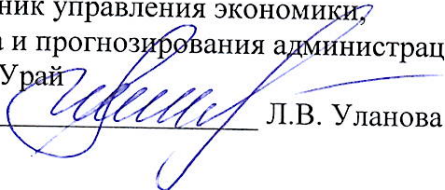 ник управления экономики,
а и прогнозирования администрац
Урай
Л.В. Уланова